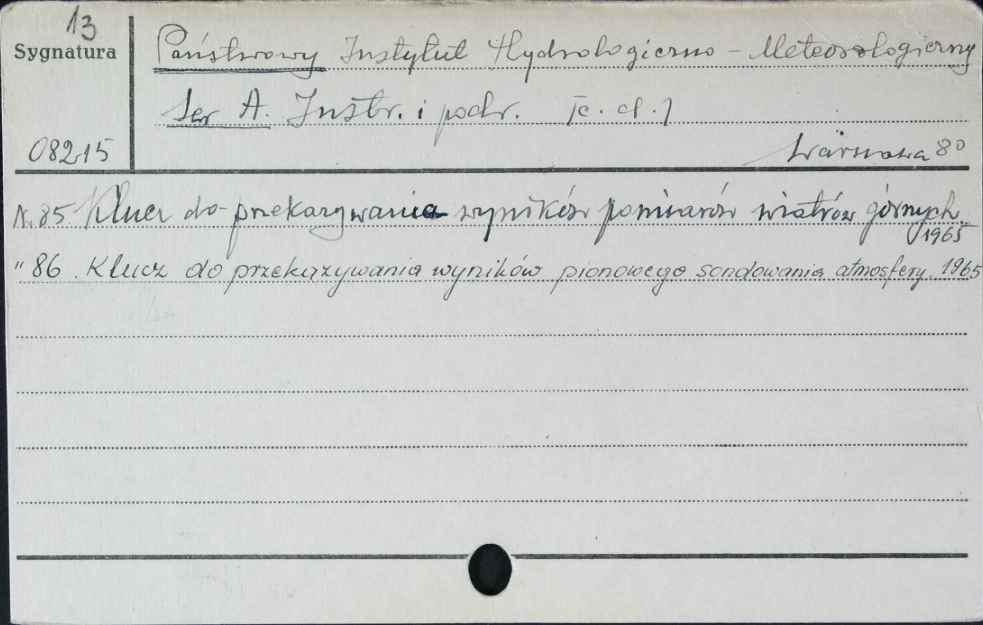 13
Sygnatura
08215
Państwowy Instytut Hydrologiczno - Meteorologiczny
Ser A. Instr. i podr. [c. d.]
Warszawa 8°
Nr. 85 Klucz do przekazywania wyników pomiarów wiatrów górnych. 1965
" 86. Klucz do przekazywania wyników pionowego sondowania atmosfery. 1965